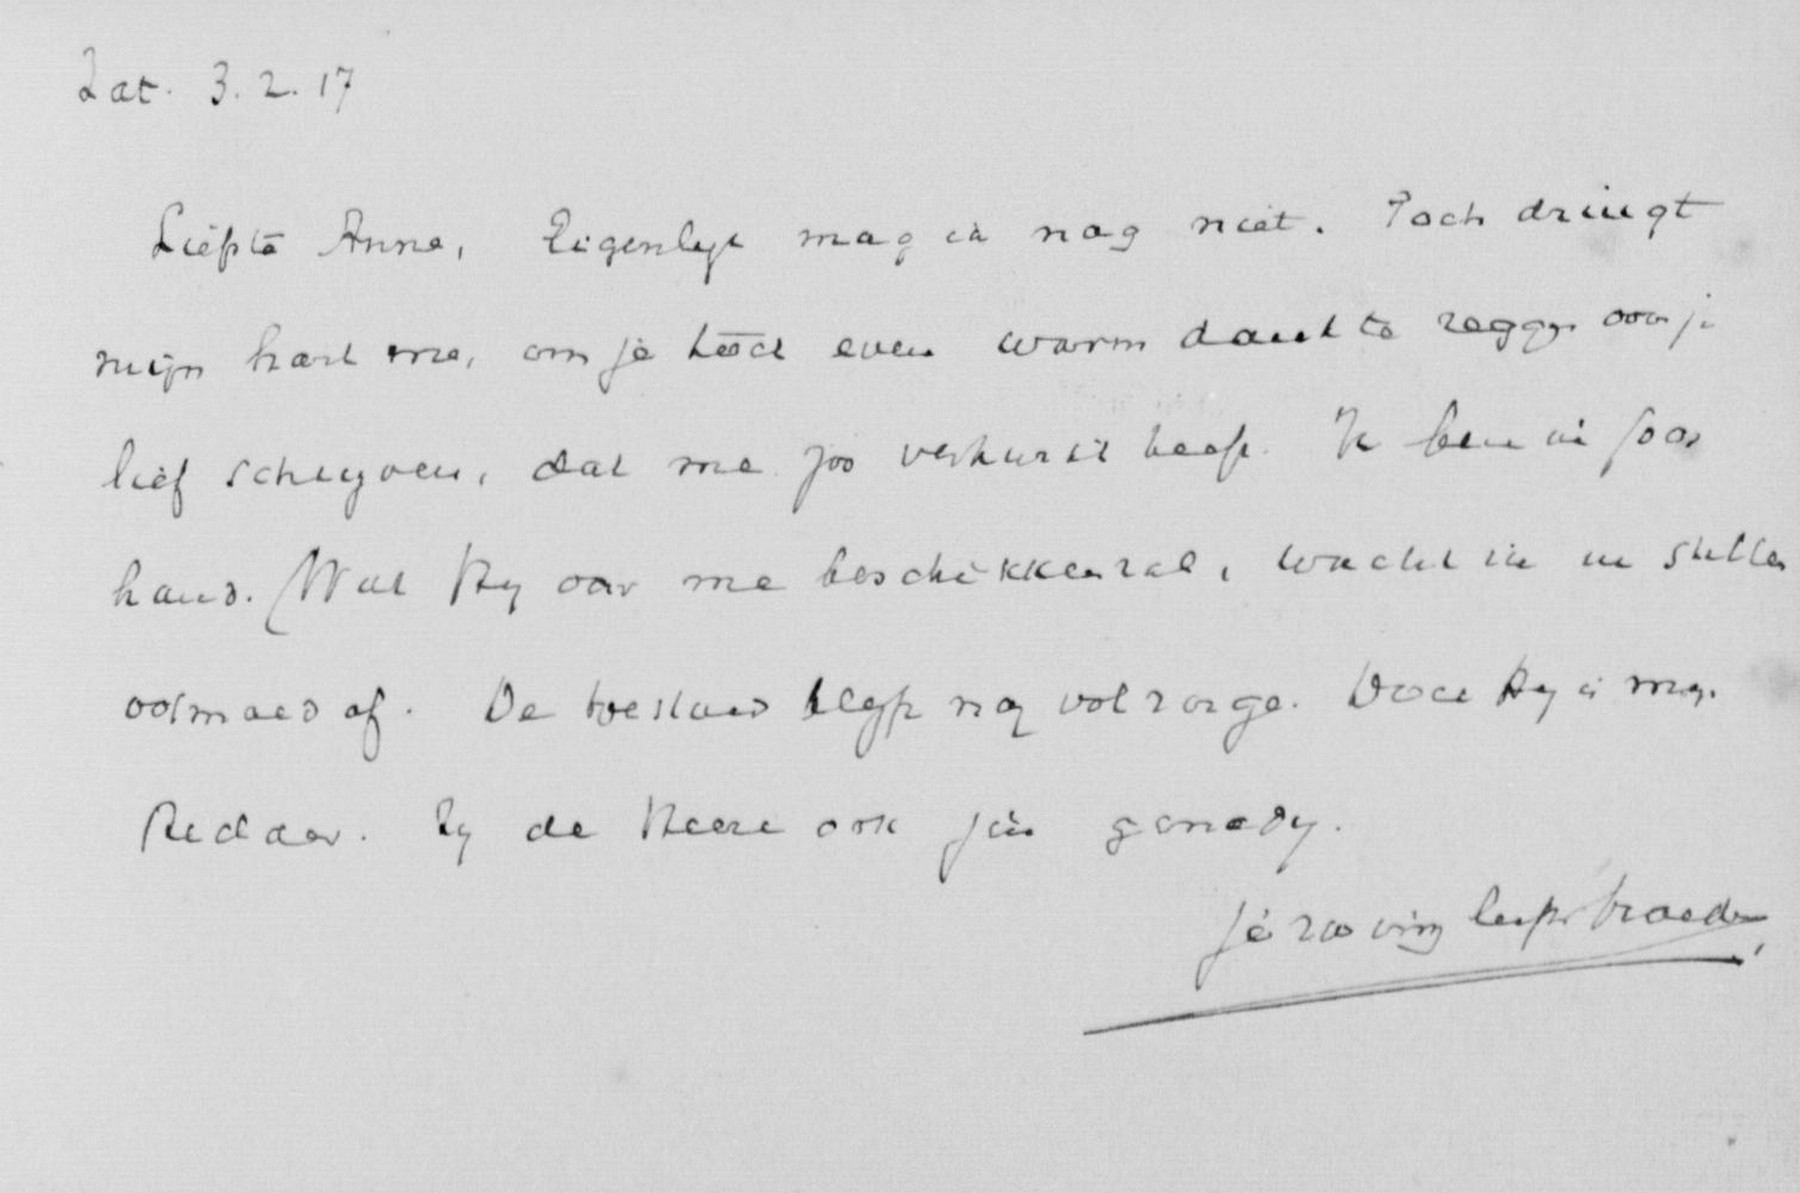 Zat. 3.2.17
Liefste Anna, Eigenlijk mag ik nog niet. Toch dringt
mijn hart me, om je toch even warm dank te zeggen voor je
lief schrijven, dat me zoo verkwikt heeft. Ik ben in Gods
hand. Wat Hij over me beschikken zal, wacht ik in stillen
ootmoed af. De toestand blijft nog vol zorge. Doch Hij is mijn
Redder. Zij de Heere ook jou genadig.
je zoo innig liefh. broeder,